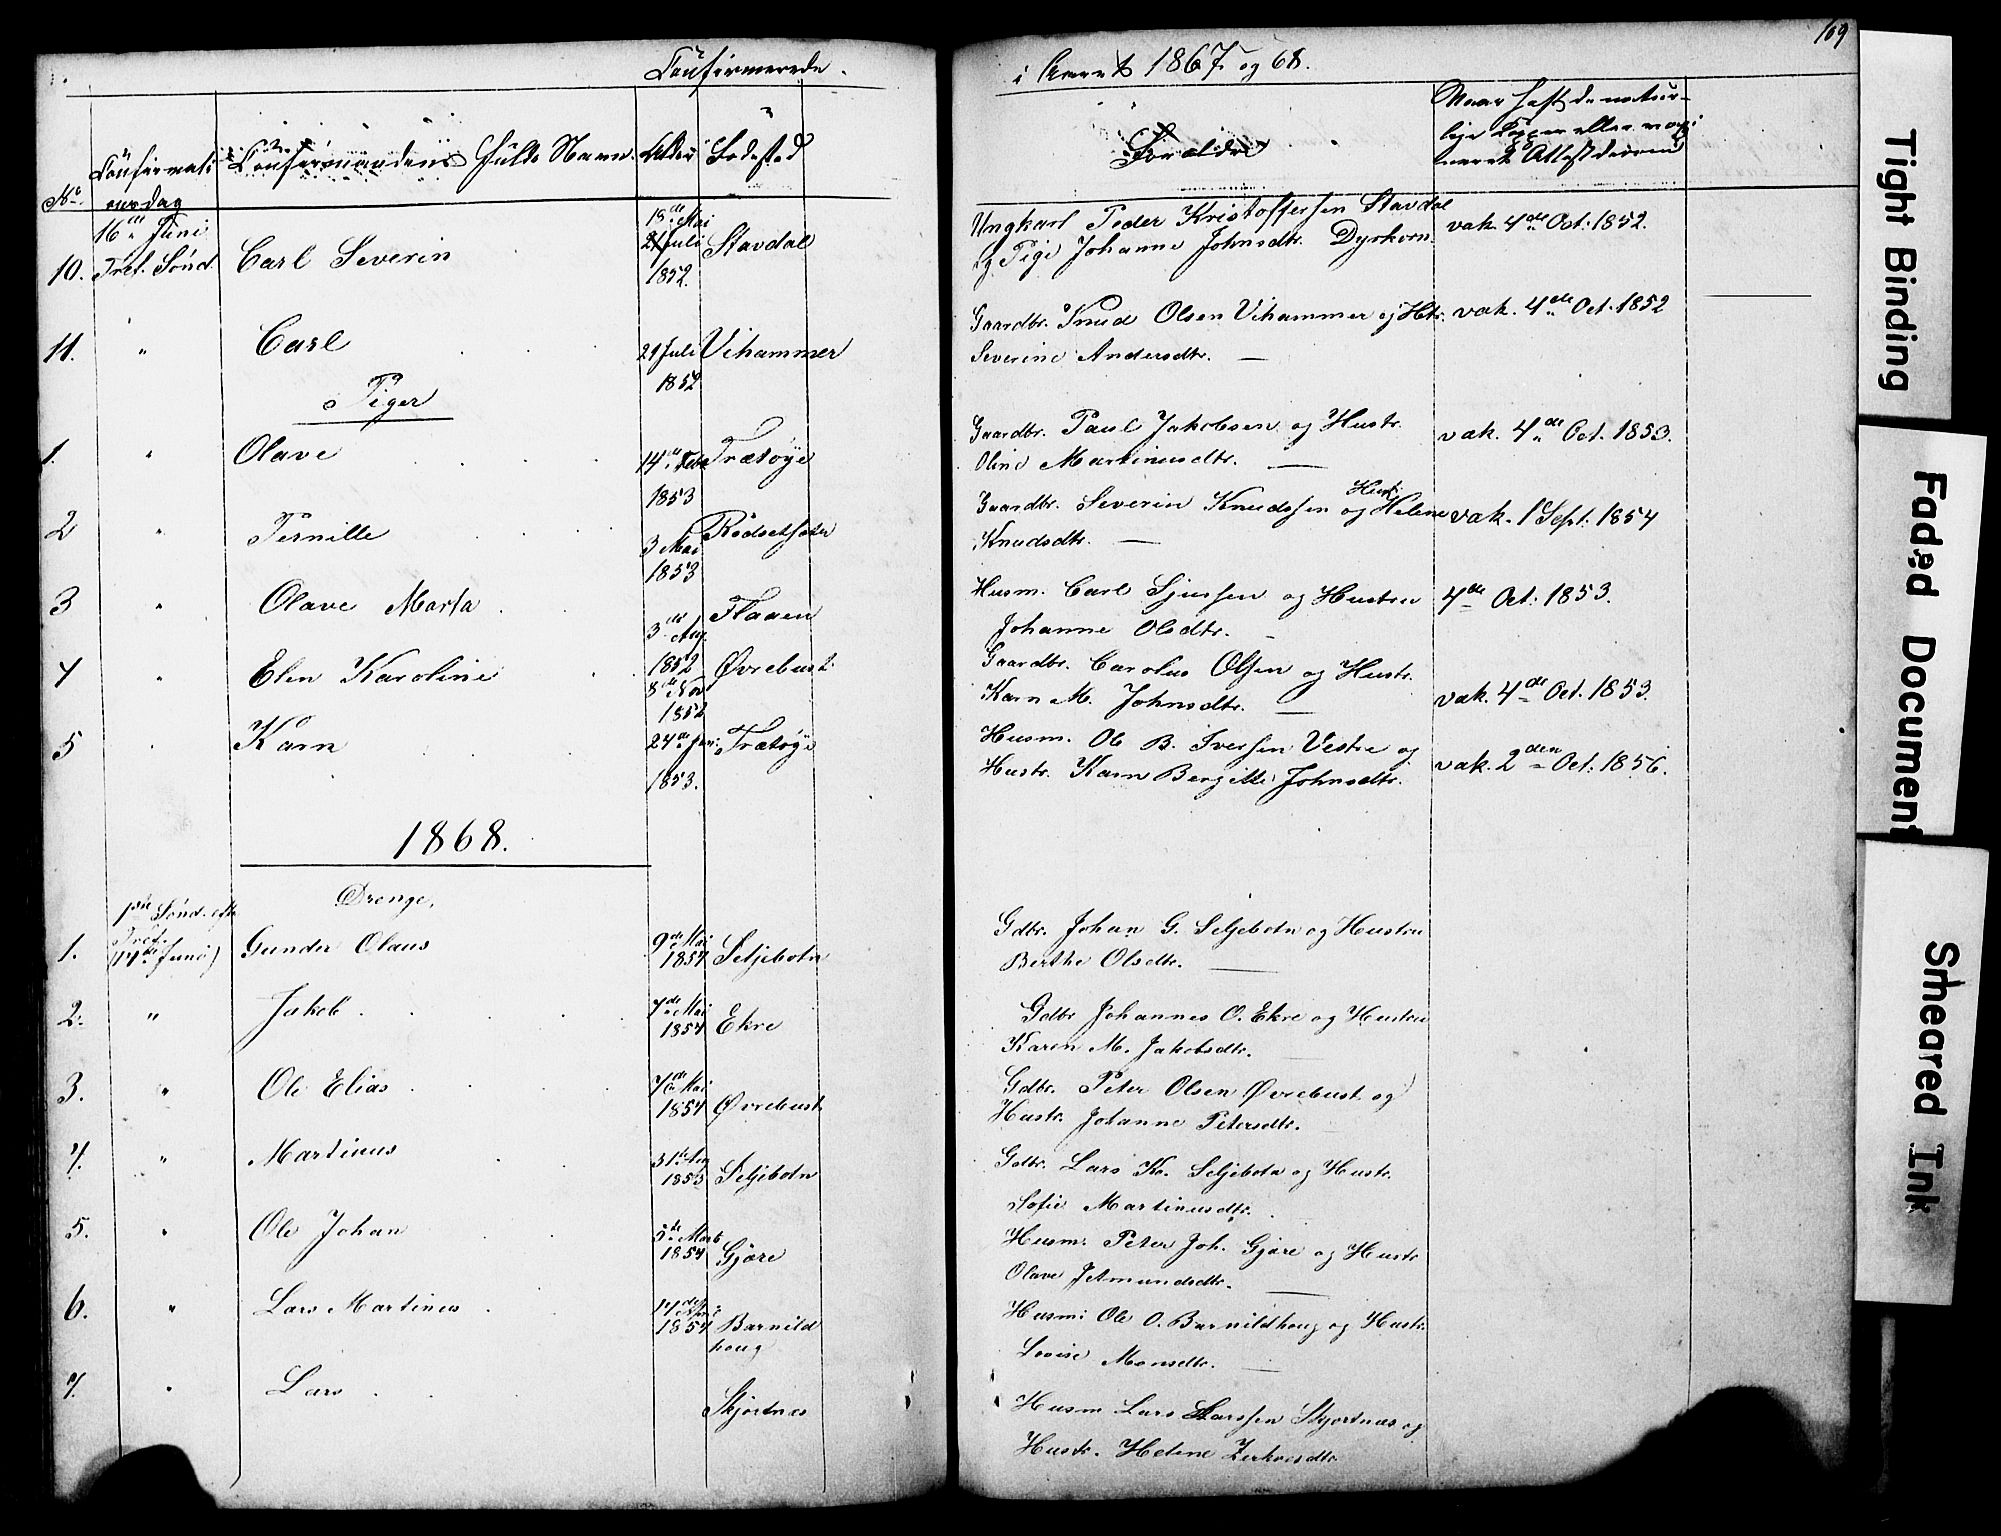 Confirmerede
i Aaret 1867 og 68.
109
No
Confirmations dag
Confirmandens fulde Navn
Alder
Fødested
Forældre
Naar havt de naturlige Kopper eller vaccineret & Attest derom
10. 16de Juni Tref. Sönd. Carl Severin 18de Mai 21 Juli 1852. Stavdal
Ungkarl Peder Kristoffersen Stavdal vak. 4de Oct: 1852.
og Pige Johanne Johnsdtr. Dyrkorn.
11. " Carl 21 Juli 1852 Vihammer
Gaardbr. Knud Olsen Vihammer og Htr. vak. 4de Oct. 1852
Severine Andersdtr. —
Piger
1. " Olave 14de Febr 1853 Trætøye
Gaardbr. Paul Jakobsen og Hustr. vak. 4de Oct. 1853.
Oline Martinusdtr. —
2 " Pernille 3 Mai 1853 Rødsetsæter
Gaardbr. Severin Knudssen og Hustr. Helene vak. 1 Sept. 1854
Knudsdtr. —
3 " Olave Marta 3de Aug. 1852 Flaaen
Husm. Carl Sjurssen og Hustru 4de Oct: 1853.
Johanne Olsdtr.
4 " Elen Karoline 8de Nov 1852 Øvrebust.
Gaardbr. Carolus Olsen og Hustr. vak. 4de Oct. 1853.
Karn M. Johnsdtr. —
5 " Karn 24de Jan: 1853. Trætøye
Husm. Ole B. Iversen Vestre og
Hustr. Karn Bergitte Johnsdtr. vak. 2den Oct. 1856.
1868.
Drenge.
1. 1ste Sönd. eftr Tref. (14de Juni) Gunder Olaus 9de Mai 1854 Seljebotn
Gdbr. Johan G. Seljebotn og Hustru
Berthe Olsdtr. —
2. " Jakob 7de Mai 1854 Ekre
Gdbr Johannes O. Ekre og Hustru
Karen M. Jakobsdtr. —
3. " Ole Elias 7de Mai 1854 Øvrebust
Gdbr. Peter Olsen Øvrebust og
Hustr. Johanne Petersdtr. —
4. " Martinus 31te 1853 Seljebotn
Gdbr. Lars Kn. Seljebotn og Hustr.
Sofie Martinusdtr.
5. " Ole Johan 5de Marts 1854 Gjære
Husm. Peter Joh. Gjære og Hustr
Olave Jetmundsdtr. —
6. " Lars Martinus 14de April 1854 Barnild houg
Husm: Ole O. Barnildhoug og Hustr.
Lovise Monsdtr. —
7. " Lars Skjortnes
Husm Lars Larssen Skjortnes og
Hustr. Helene Zirkvesdtr
Tight Binding
Faded Document
Smeared Ink